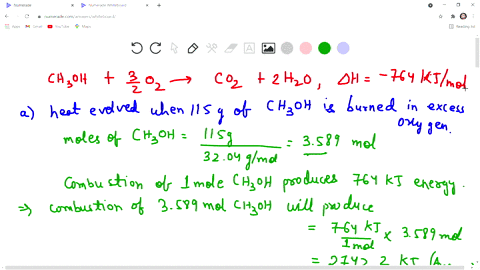 CH3OH + 3/2 O2 → CO2 + 2H2O, ΔH = -764 KJ/mol
a) heat evolved when 115 g of CH3OH is burned in excess oxygen.
moles of CH3OH = 115g / 32.04 g/mol = 3.589 mol
Combustion of 1 mole CH3OH produces 764 KJ energy.
⇒ combustion of 3.589 mol CH3OH will produce
= 764 KJ / 1 mol × 3.589 mol